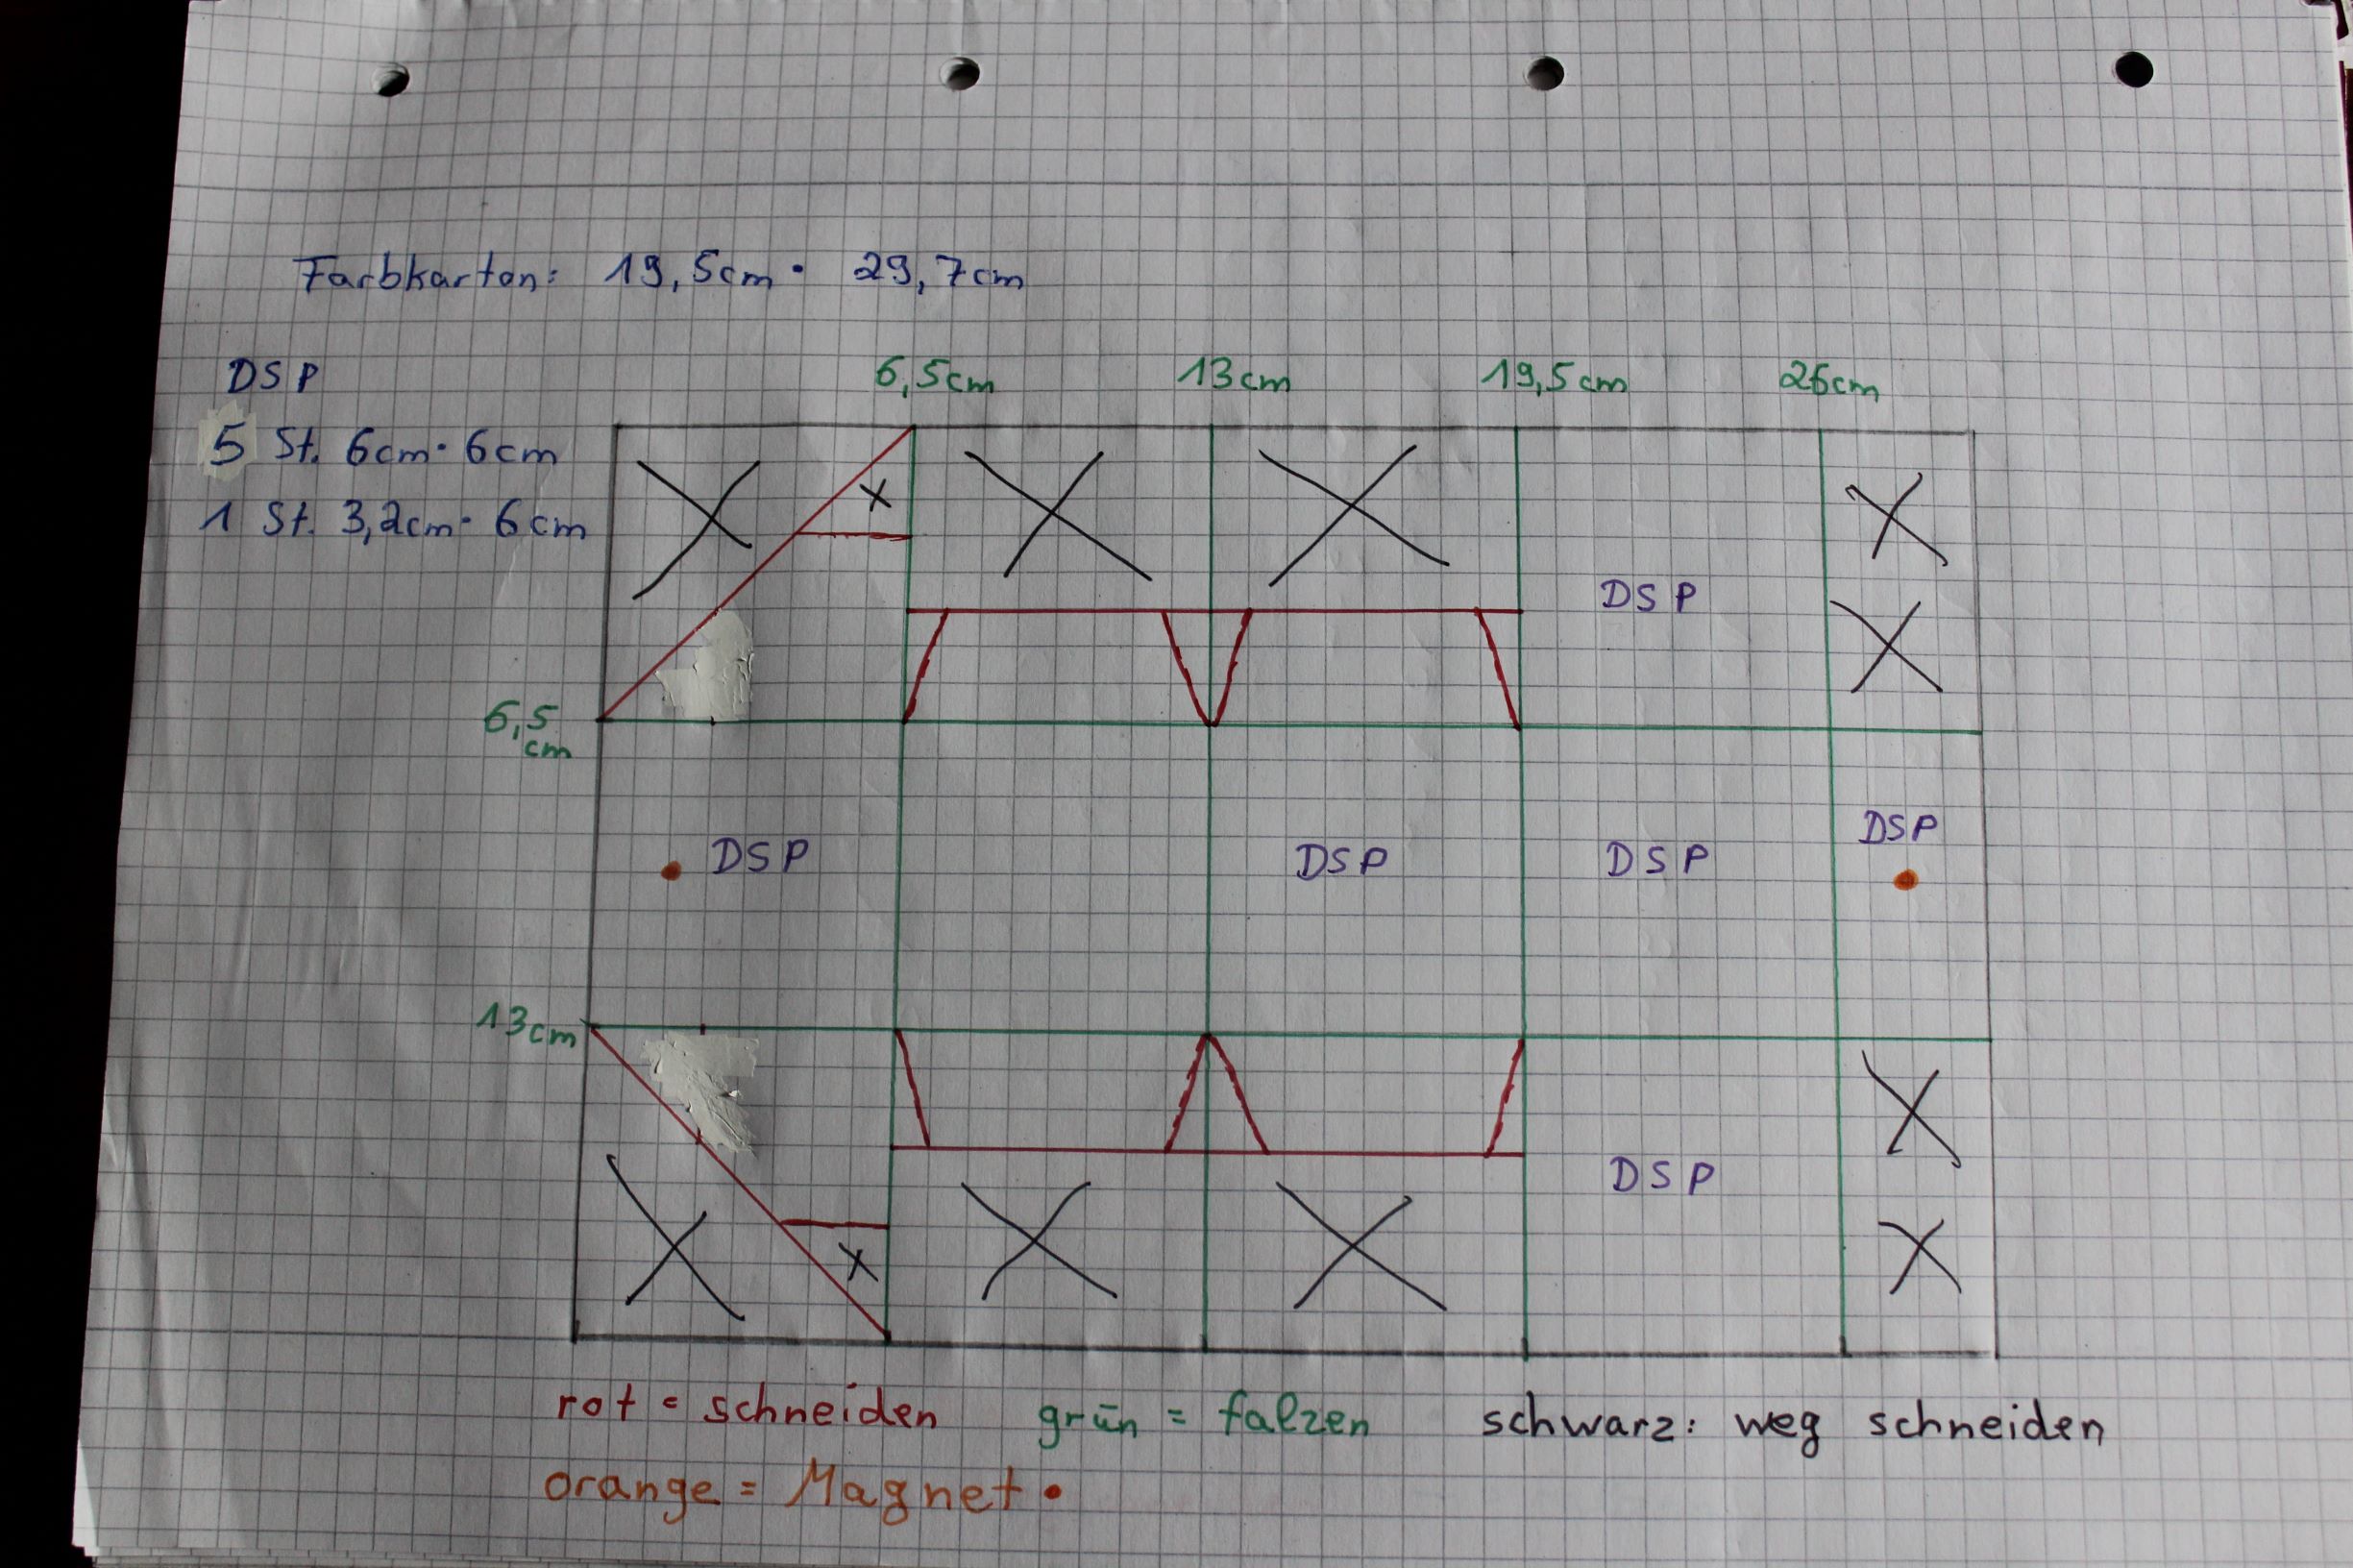 Farbkarton: 19,5cm · 29,7cm
DSP
5 St. 6cm · 6cm
1 St. 3,2cm · 6cm
6,5cm 13cm 19,5cm 26cm
X X X X X
DSP
X
6,5
cm
DSP DSP DSP DSP
13cm
X
DSP
X X X X X
rot = schneiden grün = falzen schwarz: weg schneiden
orange = Magnet •